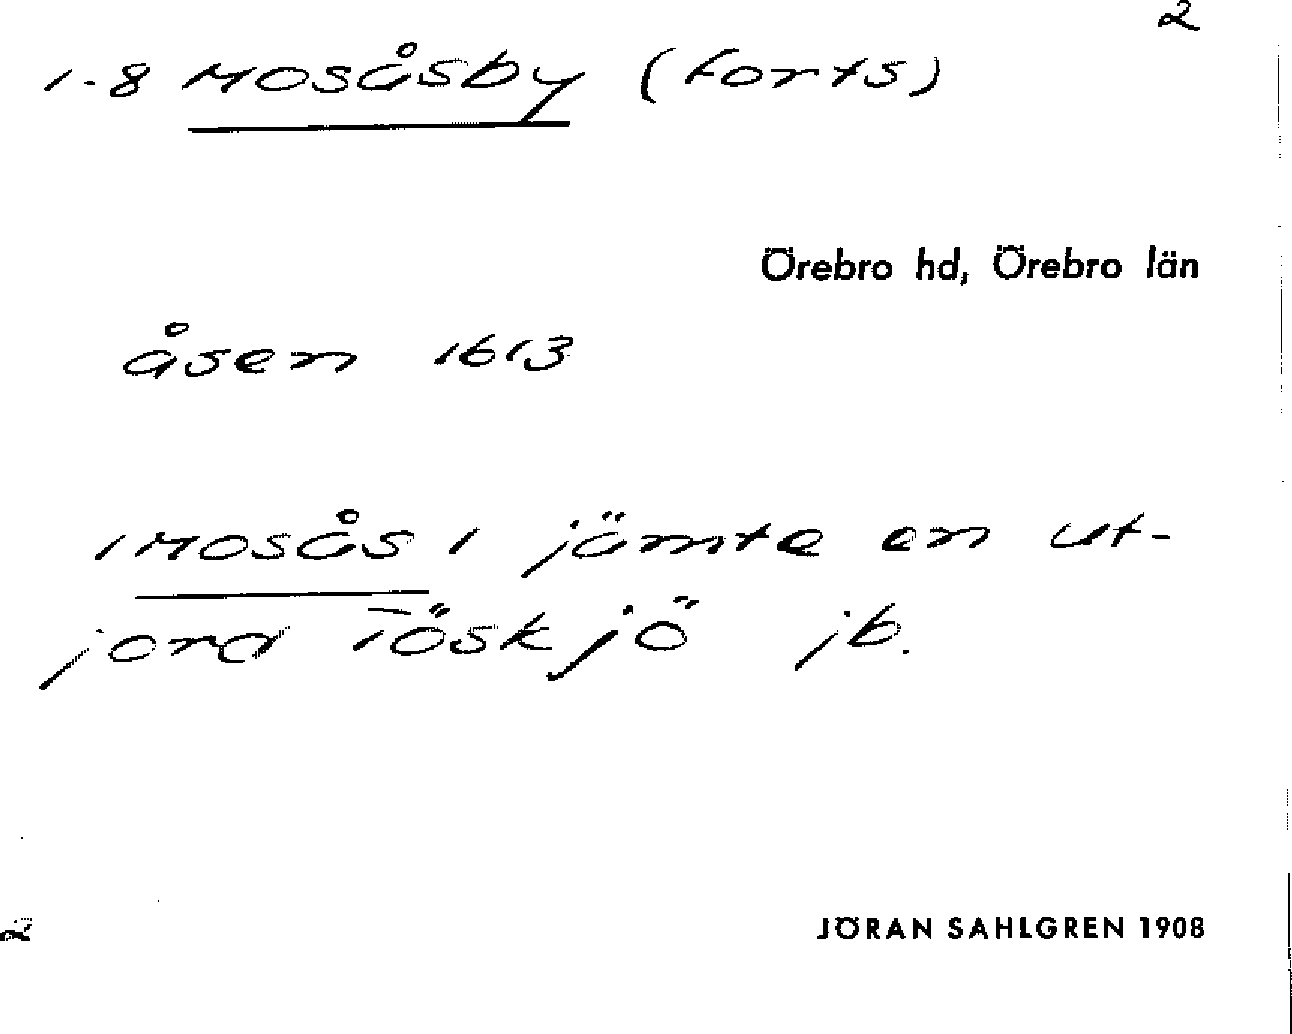 2
1-8 Mosåsby (forts)
Örebro hd, Örebro län
åsen 1613
1 Mosås 1 jämte en ut-
jord Töskjö jb.
2
JÖRAN SAHLGREN 1908